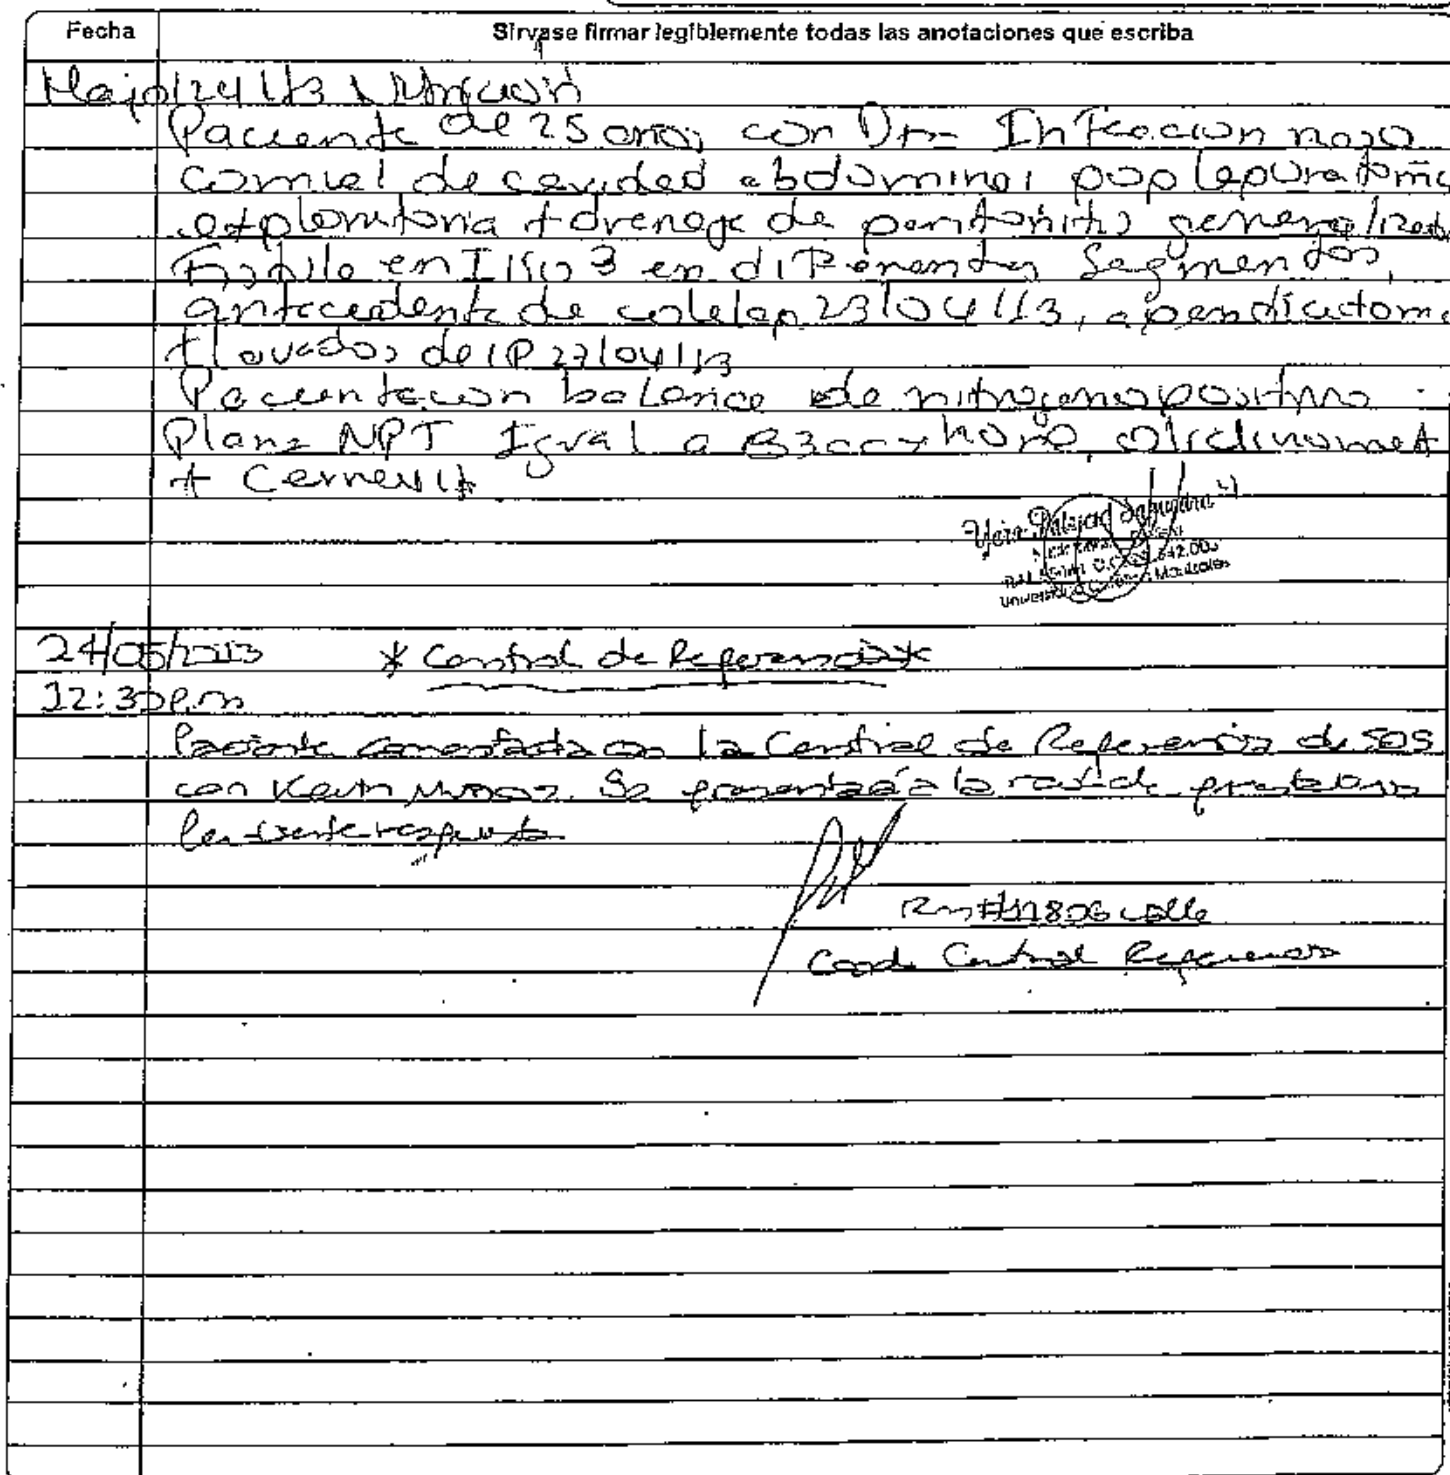 Fecha
Sírvase firmar legiblemente todas las anotaciones que escriba
Mayo/24/13 Nutrición
Paciente de 25 años con Dx- Infección noso
comial de cavidad abdominal pop laparotomía
exploratoria + drenaje de peritonitis generalizada
en 3 en diferentes segmentos,
antecedente de colelap 23/04/13, apendicetomía
+ lavados de 27/04/13
Paciente con balance de nitrógeno positivo
Plan= NPT Igual a 83cc x hora,
+ Cernevit
24/05/2013 * Central de Referencia *
12:35 p.m
Paciente comentada en la Central de Referencia de SOS
con Kevin Se presentará a la red de
respuesta
Rm #11806 Valle
Coord. Central Referencia